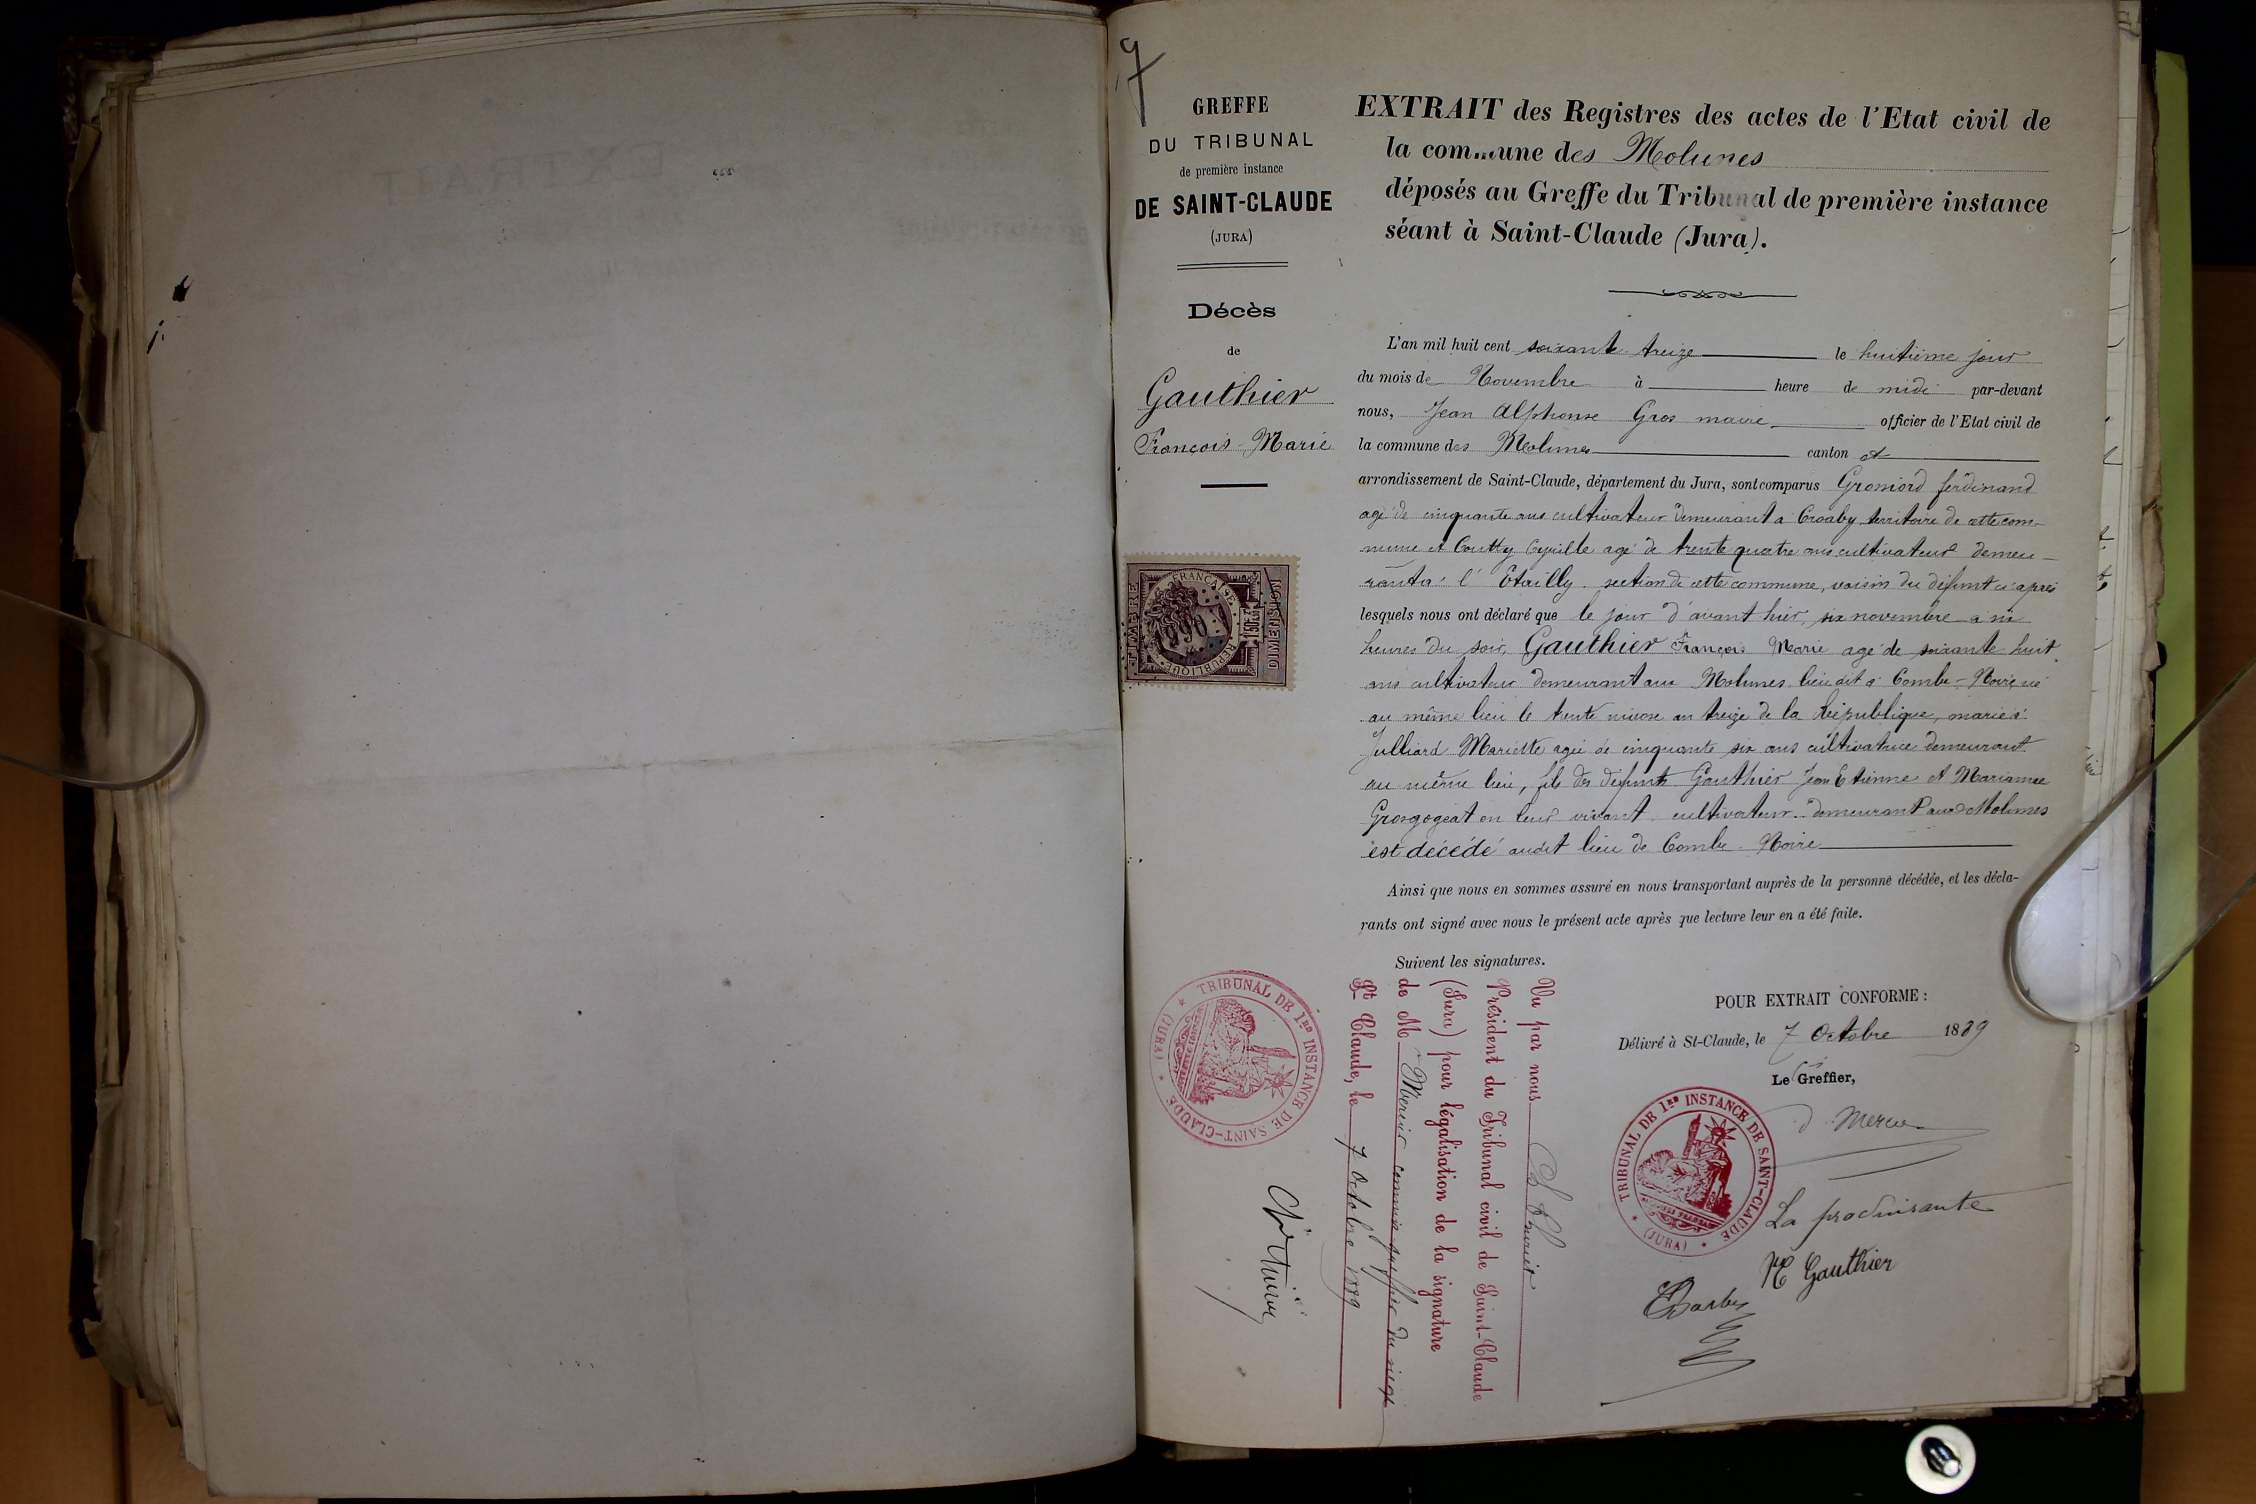 9
GREFFE
DU TRIBUNAL
de première instance
DE SAINT-CLAUDE
(JURA)
Décès
de
Gauthier
François-Marie
EXTRAIT des Registres des actes de l'Etat civil de
la commune des Molunes
déposés au Greffe du Tribunal de première instance
séant à Saint-Claude (Jura).
L'an mil huit cent soixante treize le huitième jour
du mois de Novembre à heure de midi par-devant
nous, Jean Alphonse Gros maire officier de l'Etat civil de
la commune des Molunes canton et
arrondissement de Saint-Claude, département du Jura, sont comparus Grosniord ferdinand
agé de cinquante ans cultivateur demeurant a territoire de cette com-
mune et Cyrille agé de trente quatre ans cultivateur demeu-
rant a l' Etailly section de cette commune, voisin du défunt ci après
lesquels nous ont déclaré que le jour d'avant hier, six novembre a six
heures du soir, Gauthier François Marie agé de soixante huit
ans cultivateur demeurant aux Molunes lieu dit a Combe-Noire né
au même lieu le trente nivose an treize de la République, marié à
Julliard Mariette agée de cinquante six ans cultivatrice demeurant
au même lieu, fils des défunts Gauthier Jean Etienne et Marianne
Grosgogeat en leur vivant cultivateur demeurant aux Molunes
est décédé audit lieu de Combe-Noire
Ainsi que nous en sommes assuré en nous transportant auprès de la personne décédée, et les décla-
rants ont signé avec nous le présent acte après que lecture leur en a été faite.
Suivent les signatures.
POUR EXTRAIT CONFORME :
Délivré à St-Claude, le 7 Octobre 1889
Le Greffier,
La produisante
Gauthier
Vu par nous
Président du Tribunal civil de Saint-Claude
(Jura) pour légalisation de la signature
de M Mercier commis greffier du siège
St Claude, le 7 Octobre 1889
TRIBUNAL DE 1RE INSTANCE DE SAINT-CLAUDE
(JURA)
TRIBUNAL DE 1RE INSTANCE DE SAINT-CLAUDE
(JURA)
TIMBRE
RÉPUBLIQUE FRANÇAISE
1890
EXTRAIT